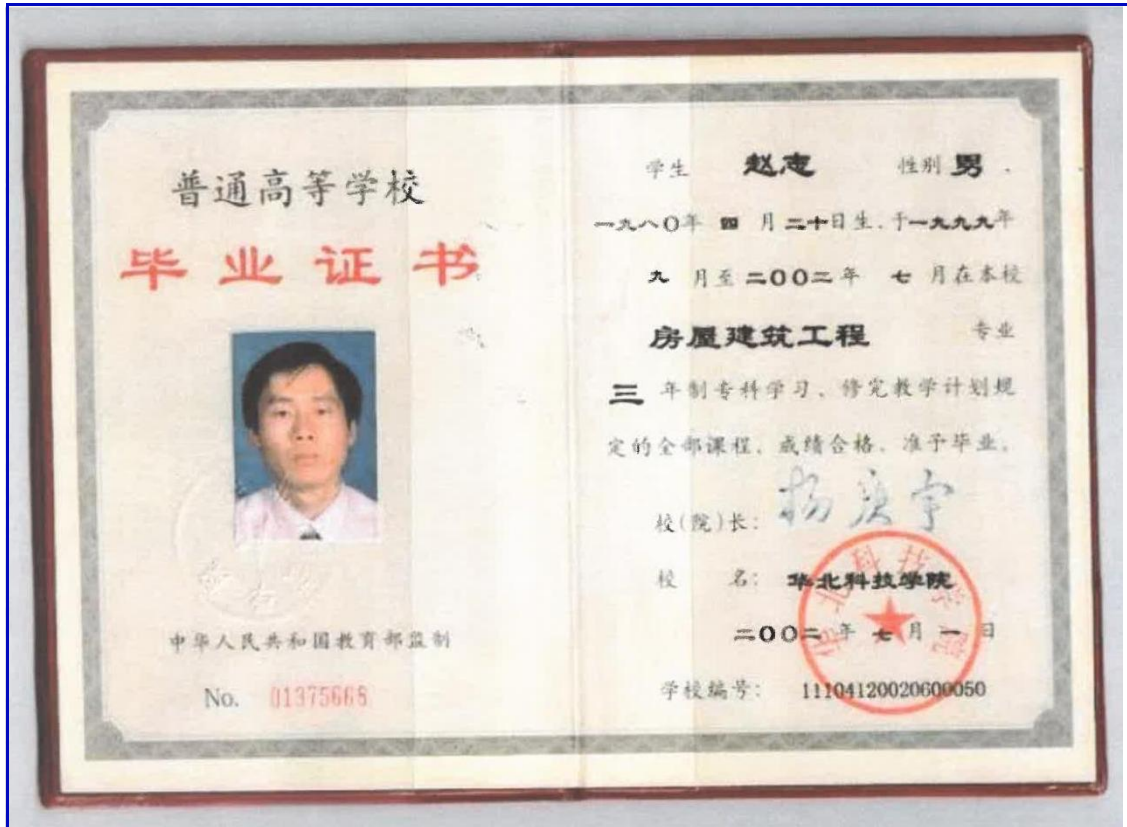 普通高等学校
毕业证书
中华人民共和国教育部监制
No. 01375668
学生 赵志 性别 男 .
一九八〇年 四 月 二十日生, 于一九九九年
九 月至 二〇〇二 年 七 月在本校
房屋建筑工程 专业
三 年制专科学习, 修完教学计划规
定的全部课程, 成绩合格, 准予毕业。
校(院)长: 杨庚宇
校 名: 华北科技学院
二〇〇二 年 七 月 一 日
学校编号: 11104120020600050
华北科技学院